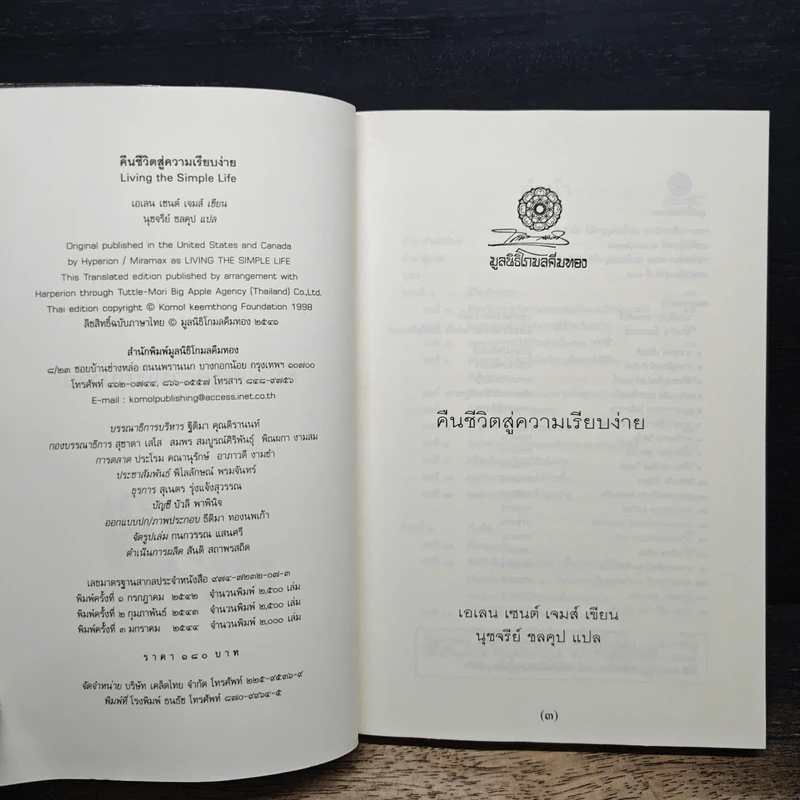 คืนชีวิตสู่ความเรียบง่าย
Living the Simple Life
เอเลน เซนต์ เจมส์ เขียน
นุชจรีย์ ชลคุป แปล
Original published in the United States and Canada
by Hyperion / Miramax as LIVING THE SIMPLE LIFE
This Translated edition published by arrangement with
Harperion through Tuttle-Mori Big Apple Agency (Thailand) Co.,Ltd.
Thai edition copyright © Komol keemthong Foundation 1998
ลิขสิทธิ์ฉบับภาษาไทย © มูลนิธิโกมลคีมทอง ๒๕๔๑
สำนักพิมพ์มูลนิธิโกมลคีมทอง
๘/๒๓ ซอยบ้านช่างหล่อ ถนนพรานนก บางกอกน้อย กรุงเทพฯ ๑๐๗๐๐
โทรศัพท์ ๔๑๒-๐๗๔๔, ๘๖๖-๑๕๕๗ โทรสาร ๘๔๘-๙๗๕๖
E-mail : komolpublishing@access.inet.co.th
บรรณาธิการบริหาร ฐิติมา คุณติรานนท์
กองบรรณาธิการ สุชาดา เสโส สมพร สมบูรณ์ศิริพันธุ์ พิณผกา งามสม
การตลาด ประโรม คณานุรักษ์ อาภาวดี งามขำ
ประชาสัมพันธ์ พิไลลักษณ์ พรมจันทร์
ธุรการ สุเนตร รุ่งแจ้งสุวรรณ
บัญชี บัวลี พาพินิจ
ออกแบบปก/ภาพประกอบ ธิติมา ทองนพเก้า
จัดรูปเล่ม กนกวรรณ แสนศรี
ดำเนินการผลิต สันติ สถาพรสถิต
เลขมาตรฐานสากลประจำหนังสือ ๙๗๔-๗๒๓๒-๐๗-๓
พิมพ์ครั้งที่ ๑ กรกฎาคม ๒๕๔๒ จำนวนพิมพ์ ๒,๕๐๐ เล่ม
พิมพ์ครั้งที่ ๒ กุมภาพันธ์ ๒๕๔๓ จำนวนพิมพ์ ๒,๕๐๐ เล่ม
พิมพ์ครั้งที่ ๓ มกราคม ๒๕๔๔ จำนวนพิมพ์ ๒,๐๐๐ เล่ม
ราคา ๑๘๐ บาท
จัดจำหน่าย บริษัท เคล็ดไทย จำกัด โทรศัพท์ ๒๒๕-๙๕๓๖-๙
พิมพ์ที่ โรงพิมพ์ ธนธัช โทรศัพท์ ๘๗๐-๙๙๖๔-๕
มูลนิธิโกมลคีมทอง
คืนชีวิตสู่ความเรียบง่าย
เอเลน เซนต์ เจมส์ เขียน
นุชจรีย์ ชลคุป แปล
(๓)